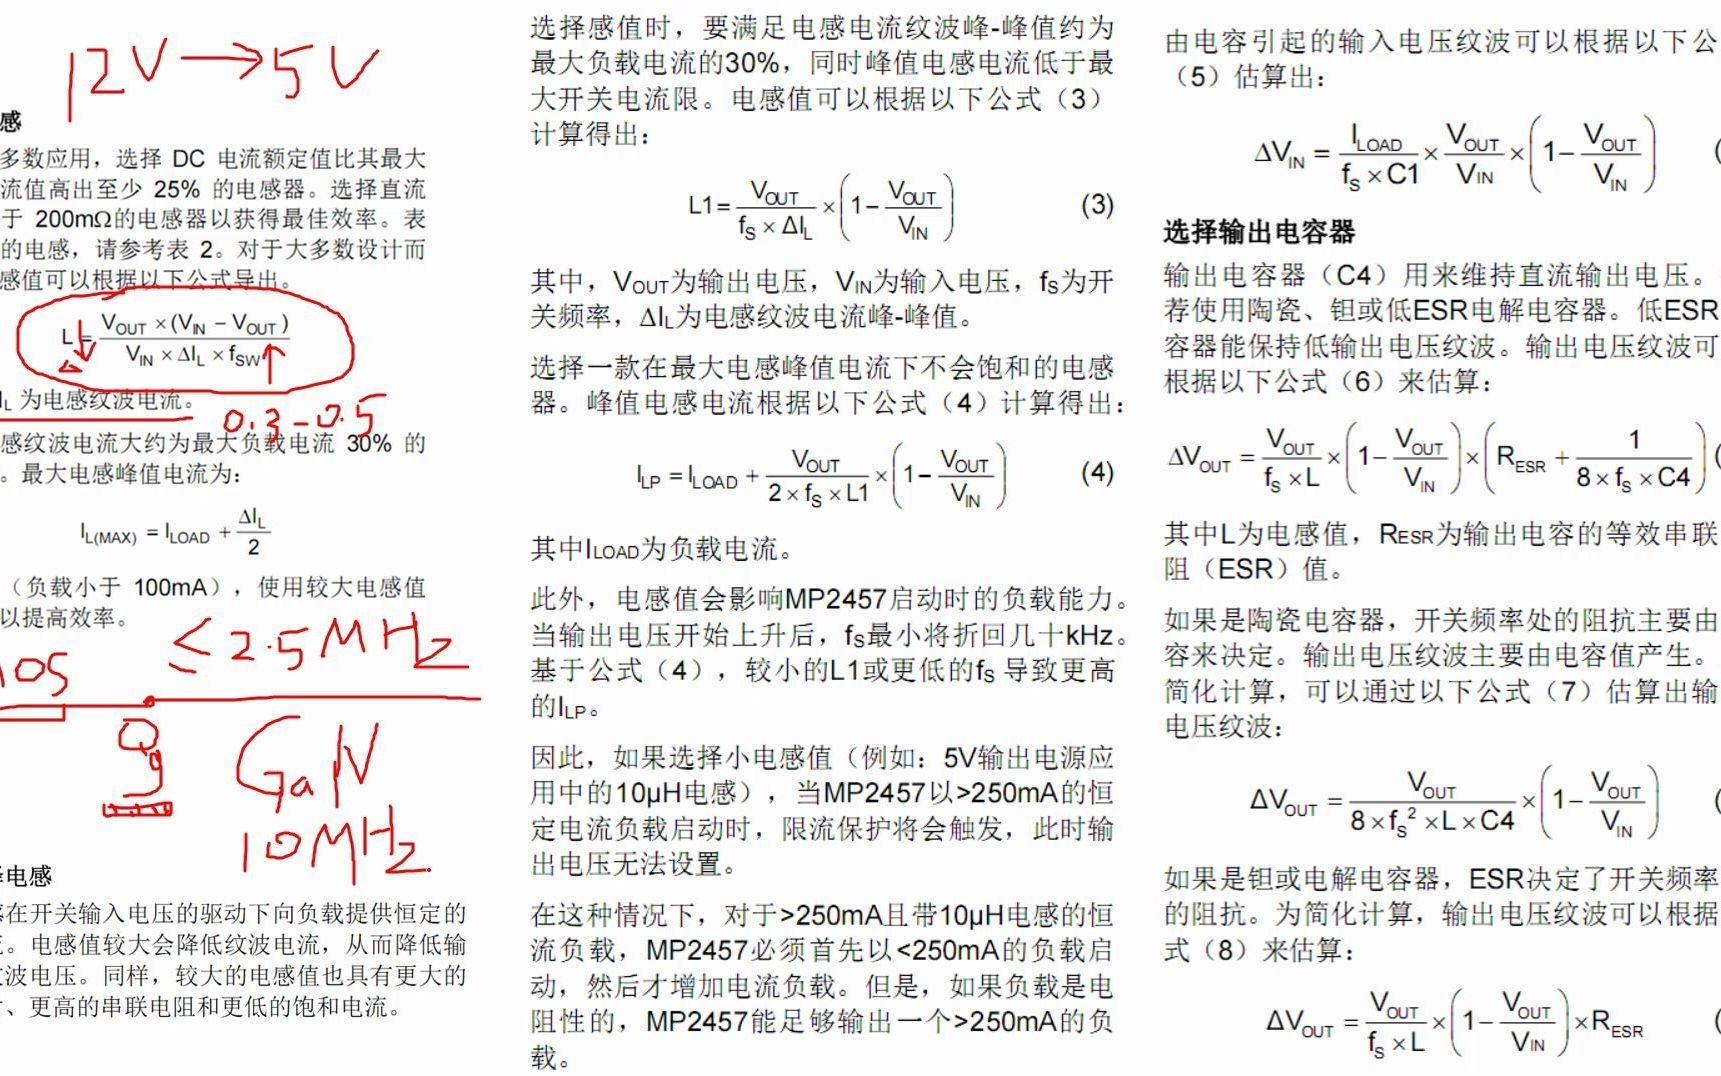 12V → 5V
感
多数应用，选择 DC 电流额定值比其最大
流值高出至少 25% 的电感器。选择直流
于 200mΩ的电感器以获得最佳效率。表
的电感，请参考表 2。对于大多数设计而
感值可以根据以下公式导出。
L = V_OUT × (V_IN − V_OUT) / (V_IN × ΔI_L × f_SW)
I_L 为电感纹波电流。
0.3-0.5
感纹波电流大约为最大负载电流 30% 的
。最大电感峰值电流为：
I_L(MAX) = I_LOAD + ΔI_L / 2
（负载小于 100mA），使用较大电感值
以提高效率。
≤2.5MHz
OS
Qg
GaN
10MHz
电感
在开关输入电压的驱动下向负载提供恒定的
。电感值较大会降低纹波电流，从而降低输
波电压。同样，较大的电感值也具有更大的
、更高的串联电阻和更低的饱和电流。
选择感值时，要满足电感电流纹波峰-峰值约为
最大负载电流的30%，同时峰值电感电流低于最
大开关电流限。电感值可以根据以下公式（3）
计算得出：
L1 = V_OUT / (f_S × ΔI_L) × (1 − V_OUT / V_IN) (3)
其中，VOUT为输出电压，VIN为输入电压，fS为开
关频率，ΔIL为电感纹波电流峰-峰值。
选择一款在最大电感峰值电流下不会饱和的电感
器。峰值电感电流根据以下公式（4）计算得出：
I_LP = I_LOAD + V_OUT / (2 × f_S × L1) × (1 − V_OUT / V_IN) (4)
其中ILOAD为负载电流。
此外，电感值会影响MP2457启动时的负载能力。
当输出电压开始上升后，fS最小将折回几十kHz。
基于公式（4），较小的L1或更低的fS 导致更高
的ILP。
因此，如果选择小电感值（例如：5V输出电源应
用中的10μH电感），当MP2457以>250mA的恒
定电流负载启动时，限流保护将会触发，此时输
出电压无法设置。
在这种情况下，对于>250mA且带10μH电感的恒
流负载，MP2457必须首先以<250mA的负载启
动，然后才增加电流负载。但是，如果负载是电
阻性的，MP2457能足够输出一个>250mA的负
载。
由电容引起的输入电压纹波可以根据以下公
（5）估算出：
ΔV_IN = I_LOAD / (f_S × C1) × V_OUT / V_IN × (1 − V_OUT / V_IN)
选择输出电容器
输出电容器（C4）用来维持直流输出电压。
荐使用陶瓷、钽或低ESR电解电容器。低ESR
容器能保持低输出电压纹波。输出电压纹波可
根据以下公式（6）来估算：
ΔV_OUT = V_OUT / (f_S × L) × (1 − V_OUT / V_IN) × (R_ESR + 1 / (8 × f_S × C4))
其中L为电感值，RESR为输出电容的等效串联
阻（ESR）值。
如果是陶瓷电容器，开关频率处的阻抗主要由
容来决定。输出电压纹波主要由电容值产生。
简化计算，可以通过以下公式（7）估算出输
电压纹波：
ΔV_OUT = V_OUT / (8 × f_S² × L × C4) × (1 − V_OUT / V_IN)
如果是钽或电解电容器，ESR决定了开关频率
的阻抗。为简化计算，输出电压纹波可以根据
式（8）来估算：
ΔV_OUT = V_OUT / (f_S × L) × (1 − V_OUT / V_IN) × R_ESR